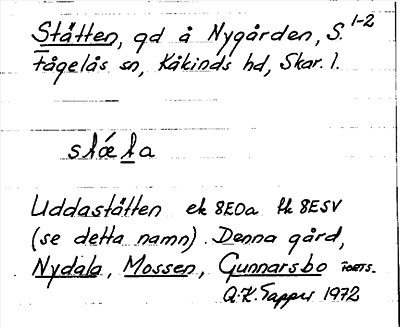 Stätten, gd å Nygården, S. 1-2
Fågelås sn, Kåkinds hd, Skar. l.
Uddastätten ek 8E0a tk 8E5V
(se detta namn). Denna gård,
Nydala, Mossen, Gunnarsbo
A.K. Tapper 1972